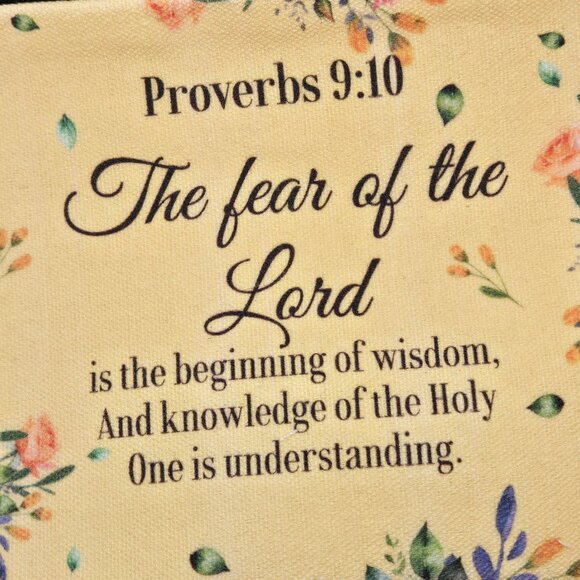 Proverbs 9:10
The fear of the
Lord
is the beginning of wisdom,
And knowledge of the Holy
One is understanding.